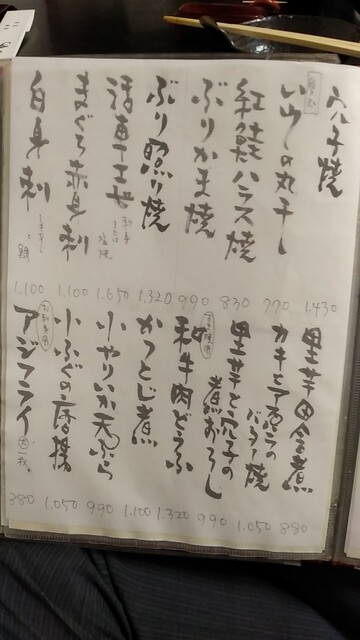 穴子焼 1.430
いわしの丸干し 770
紅鮭ハラス焼 830
ぶりかま焼 990
ぶり照り焼 1.320
活車エビ 刺身または塩焼 1.650
まぐろ赤身刺 1.100
白身刺 1.100
里芋田舎煮 880
カキとアスパラのバター焼 1.050
里芋と穴子の煮おろし 990
和牛肉どうふ 1.320
かつとじ煮 1.100
小やりいか天ぷら 990
小ふぐの唐揚 1.050
アジフライ 大一枚 380